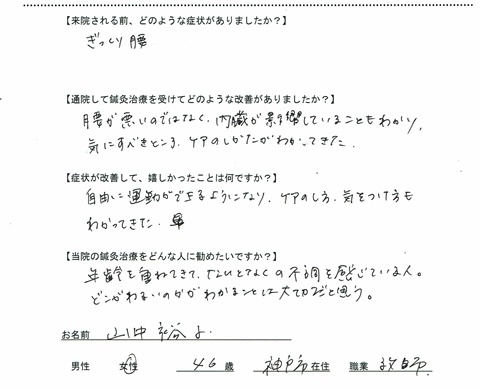 【来院される前、どのような症状がありましたか?】
ぎっくり腰
【通院して鍼灸治療を受けてどのような改善がありましたか?】
腰が悪いのではなく、内臓が影響していることもわかり、
気にすべきところ、ケアのしかたがわかってきた。
【症状が改善して、嬉しかったことは何ですか?】
自由に運動ができるようになり、ケアのし方、気をつけ方も
わかってきた。
【当院の鍼灸治療をどんな人に勧めたいですか?】
年齢を重ねてきて、なんとなくの不調を感じている人。
どこがわるいのかがわかることは大切だと思う。
お名前 山中
男性 女性 46 歳 神戸市 在住 職業 教師